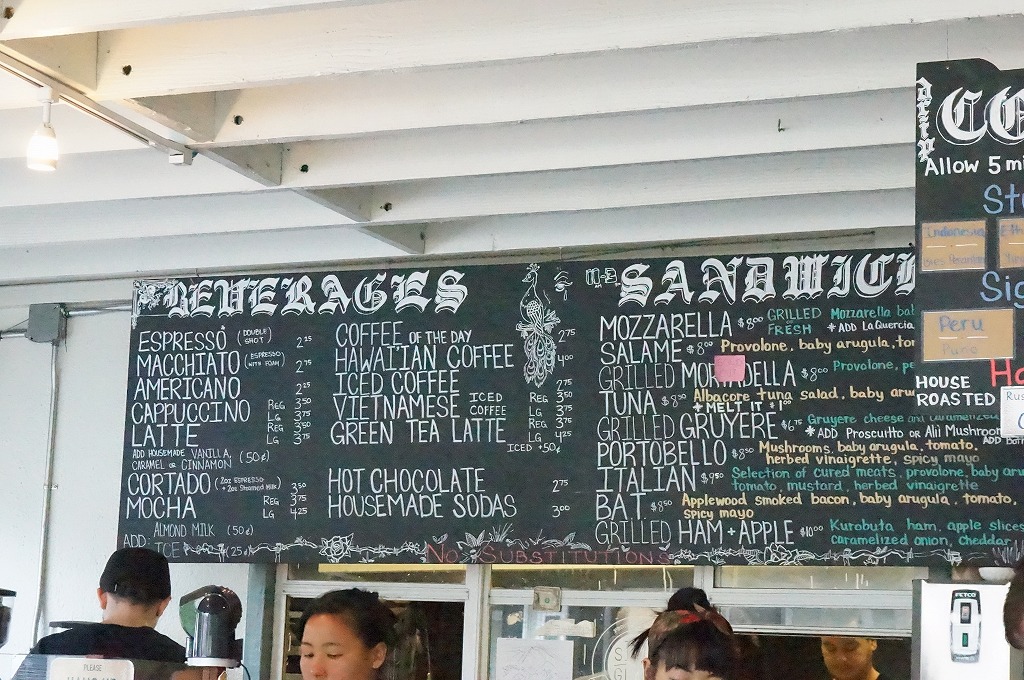 BEVERAGES
ESPRESSO (DOUBLE SHOT) 2.25
MACCHIATO (ESPRESSO WITH FOAM) 2.75
AMERICANO 2.25
CAPPUCCINO REG 3.50
LG 3.75
LATTE REG 3.50
LG 3.75
ADD HOUSEMADE VANILLA,
CARAMEL OR CINNAMON (50¢)
CORTADO (2oz ESPRESSO + 2oz Steamed Milk) 3.50
MOCHA REG 3.75
LG 4.25
ALMOND MILK (50¢)
ADD: ICE (25¢)
COFFEE OF THE DAY 2.75
HAWAIIAN COFFEE 4.00
ICED COFFEE 2.75
VIETNAMESE ICED COFFEE REG 3.50
LG 3.75
GREEN TEA LATTE REG 3.50
LG 4.25
ICED +50¢
HOT CHOCOLATE 2.75
HOUSEMADE SODAS 3.00
NO SUBSTITUTIONS
SANDWICH
MOZZARELLA $8.00 GRILLED FRESH Mozzarella
* ADD La Quercia
SALAME $8.00 Provolone, baby arugula,
GRILLED MORTADELLA $8.00 Provolone,
TUNA $8.50 Albacore tuna salad, baby
* MELT IT + 1.00
GRILLED GRUYERE $6.75 Gruyere cheese and caramelized
* ADD Prosciutto or Ali Mushroom
PORTOBELLO $8.50 Mushrooms, baby arugula, tomato,
herbed vinaigrette, spicy mayo
ITALIAN $9.50 Selection of cured meats, provolone, baby
tomato, mustard, herbed vinaigrette
BAT $8.50 Applewood smoked bacon, baby arugula, tomato,
spicy mayo
GRILLED HAM + APPLE $10.00 Kurobuta ham, apple slices
caramelized onion, cheddar
drip
CO
Allow 5 mi
St
Indonesia
Sig
Peru
HOUSE
ROASTED
FETCO
PLEASE